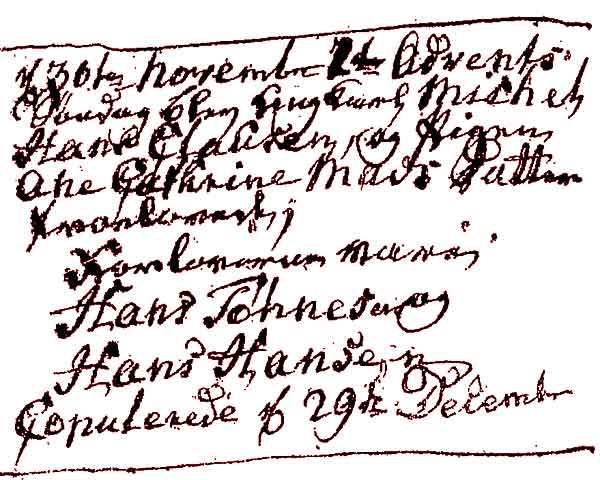 d 30te november 2den Advents
Søndag blev ungkarl Michel
Hans Clausen, og Pigen
Ane Cathrine Mads Datter
trovlovede,
Forlovernæ vare,
Hans Tønnes og
Hans Hansen
Copulerede d 29de December